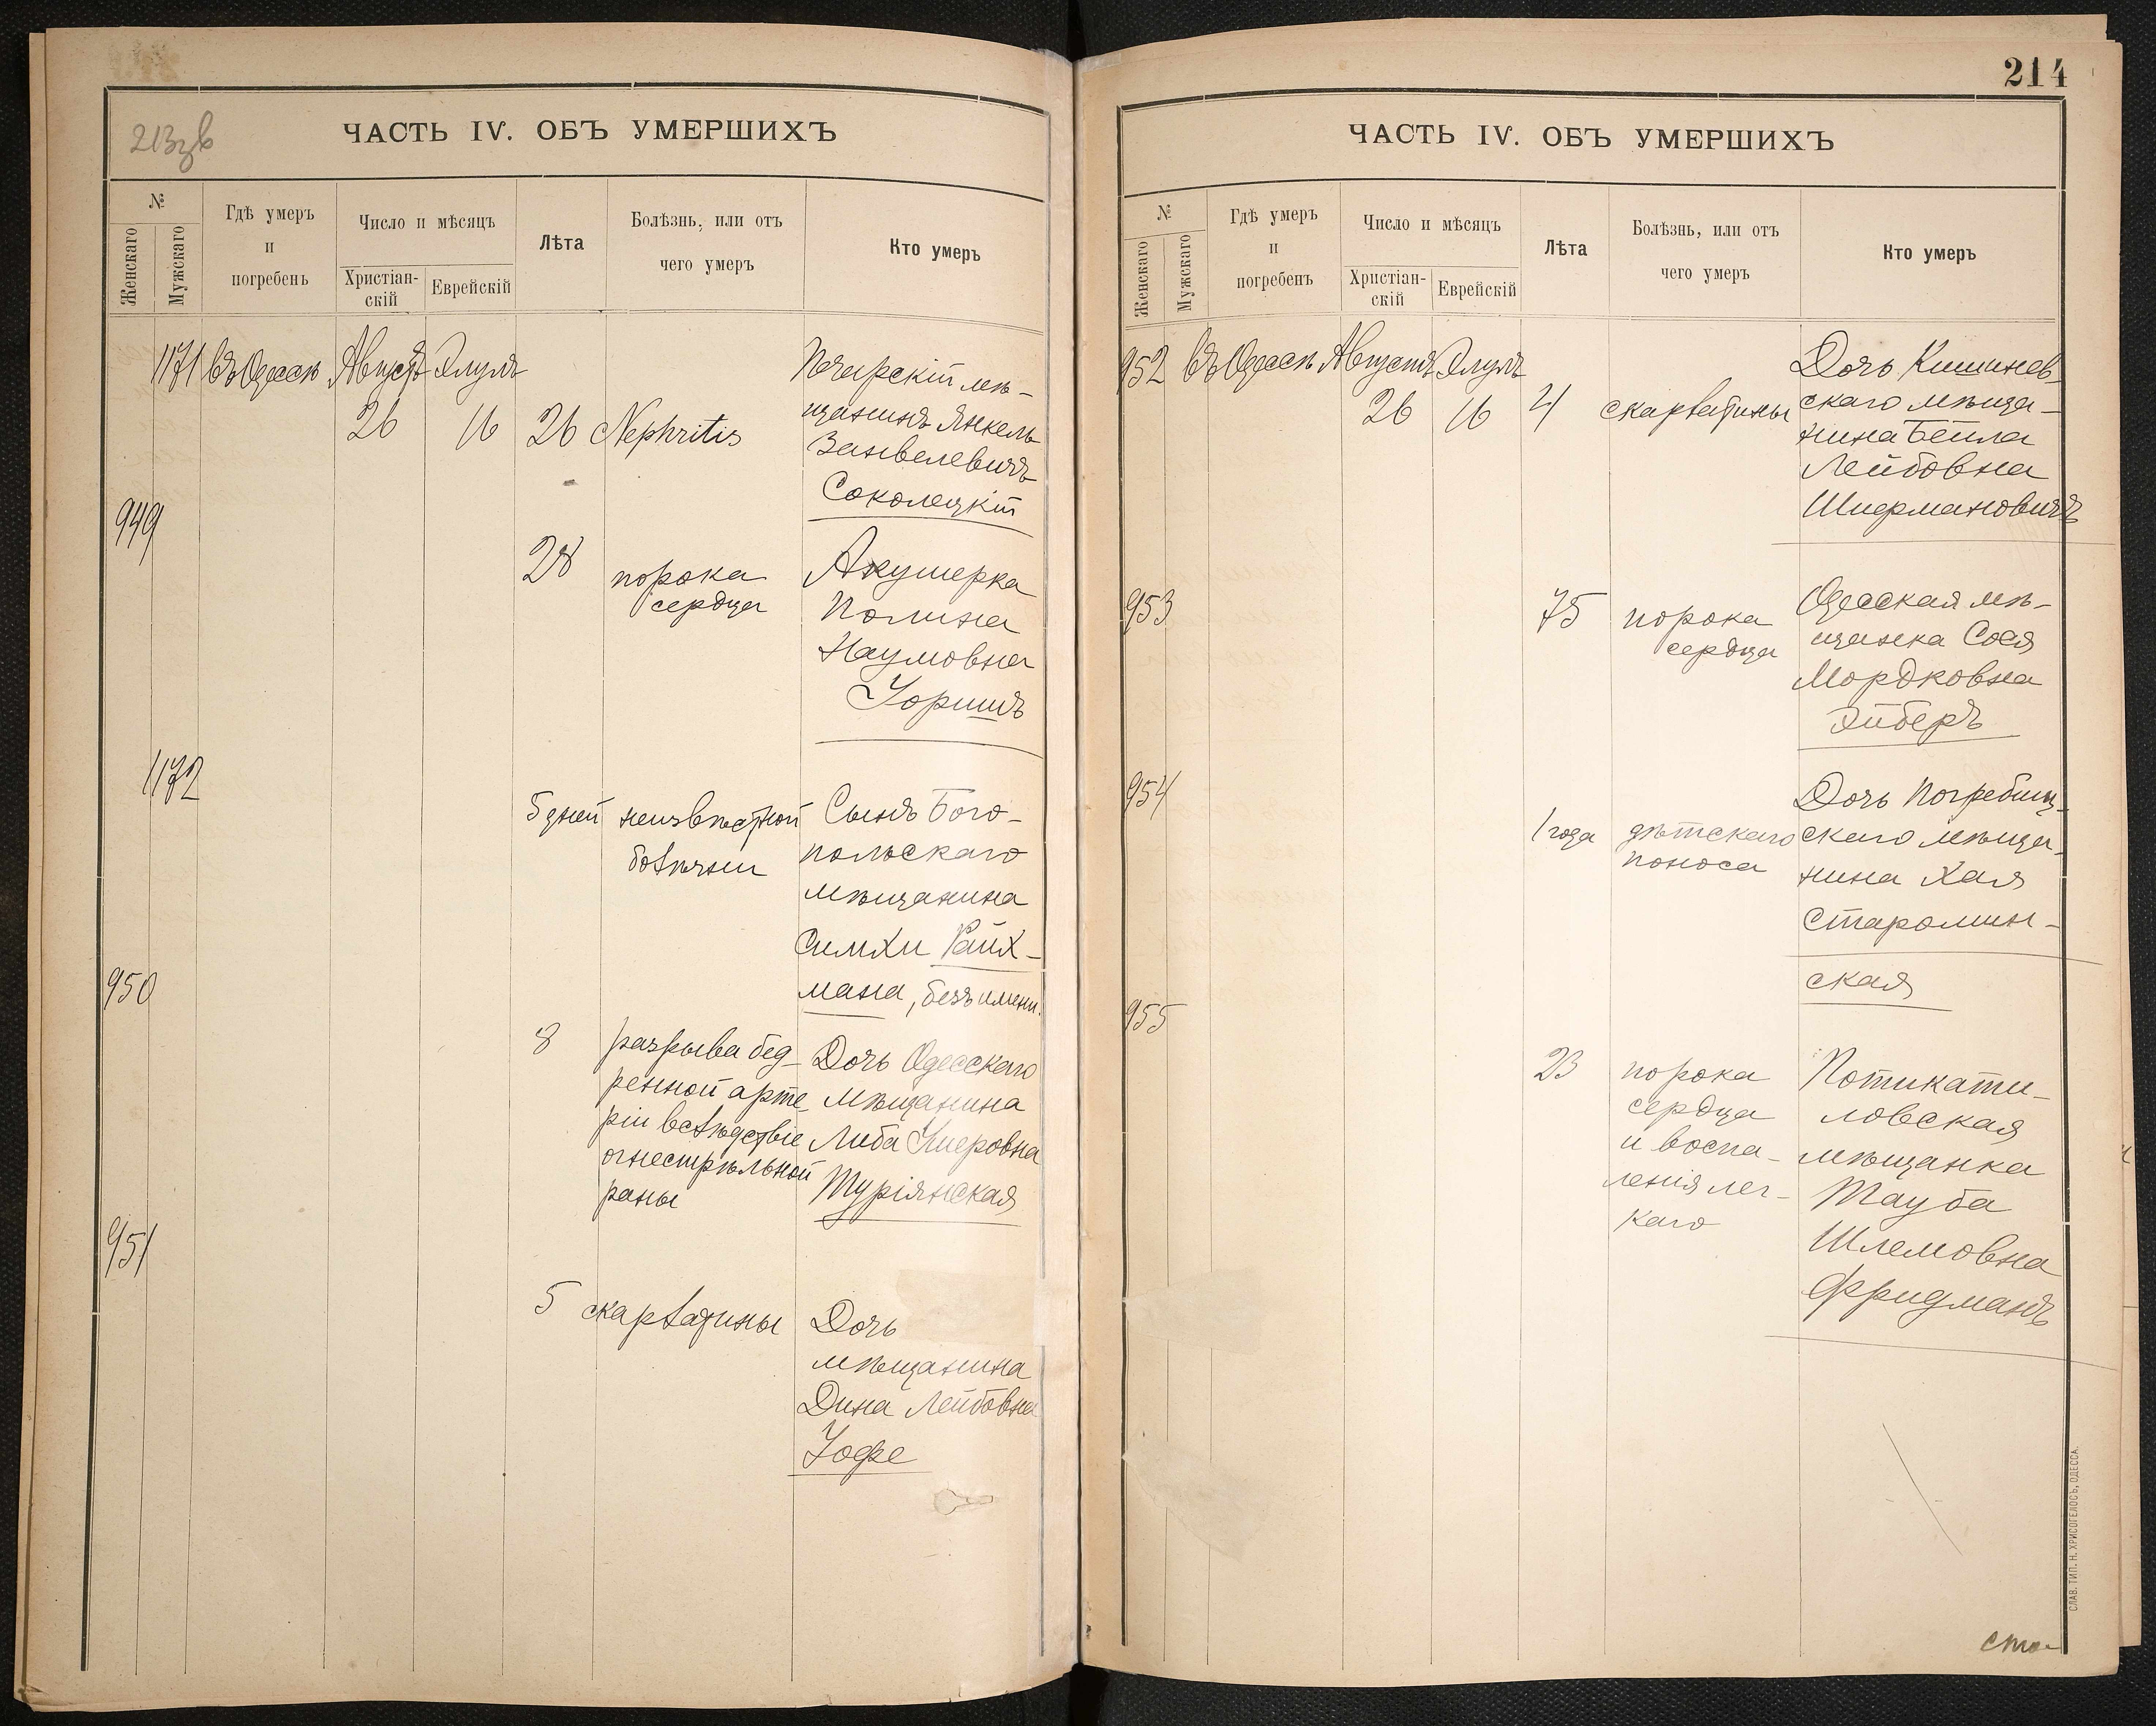 213 зв
ЧАСТЬ IV. ОБЪ УМЕРШИХЪ
№
Женскаго
Мужскаго
Гдѣ умеръ
и
погребенъ
Число и мѣсяцъ
Христіан-
скій
Еврейскій
Лѣта
Болѣзнь, или отъ
чего умеръ
Кто умеръ
1171 въ Одессѣ Августъ Элулъ
26 16 26 Nephritis
Печерскій мѣ-
щанинъ Янкель
Занвелевичъ
Соколецкій
949
28 порока
сердца
Акушерка
Полина
Наумовна
1172
5 дней неизвѣстной
болѣзни
Сынъ Бого-
польскаго
мѣщанина
Симхи Райх-
мана, безъ имени.
950
8 разрыва бед-
ренной арте-
ріи вслѣдствіе
огнестрѣльной
раны
Дочь Одесскаго
мѣщанина
Либа
Турiянская
951
5 скарлатины
Дочь
мѣщанина
Дина Лейбовна
Іофе
214
ЧАСТЬ IV. ОБЪ УМЕРШИХЪ
№
Женскаго
Мужскаго
Гдѣ умеръ
и
погребенъ
Число и мѣсяцъ
Христіан-
скій
Еврейскій
Лѣта
Болѣзнь, или отъ
чего умеръ
Кто умеръ
952 въ Одессѣ Августъ Элулъ
26 16 4 скарлатины
Дочь Кишинев-
скаго мѣща-
нина Бейла
Лейбовна
Шиермановичъ
953
75 порока
сердца
Одесская мѣ-
щанка Сося
Мордковна
Эйберъ
954
1 года дѣтскаго
поноса
Дочь Погребищ-
скаго мѣща-
нина Хая
Старомин-
ская
955
23 порока
сердца
и воспа-
ленія лег-
каго
Потикати-
ловская
мѣщанка
Тауба
Шлемовна
Фридманъ
СЛАВ. ТИП. Н. ХРИСОГЕЛОСЪ, ОДЕССА.
сто-